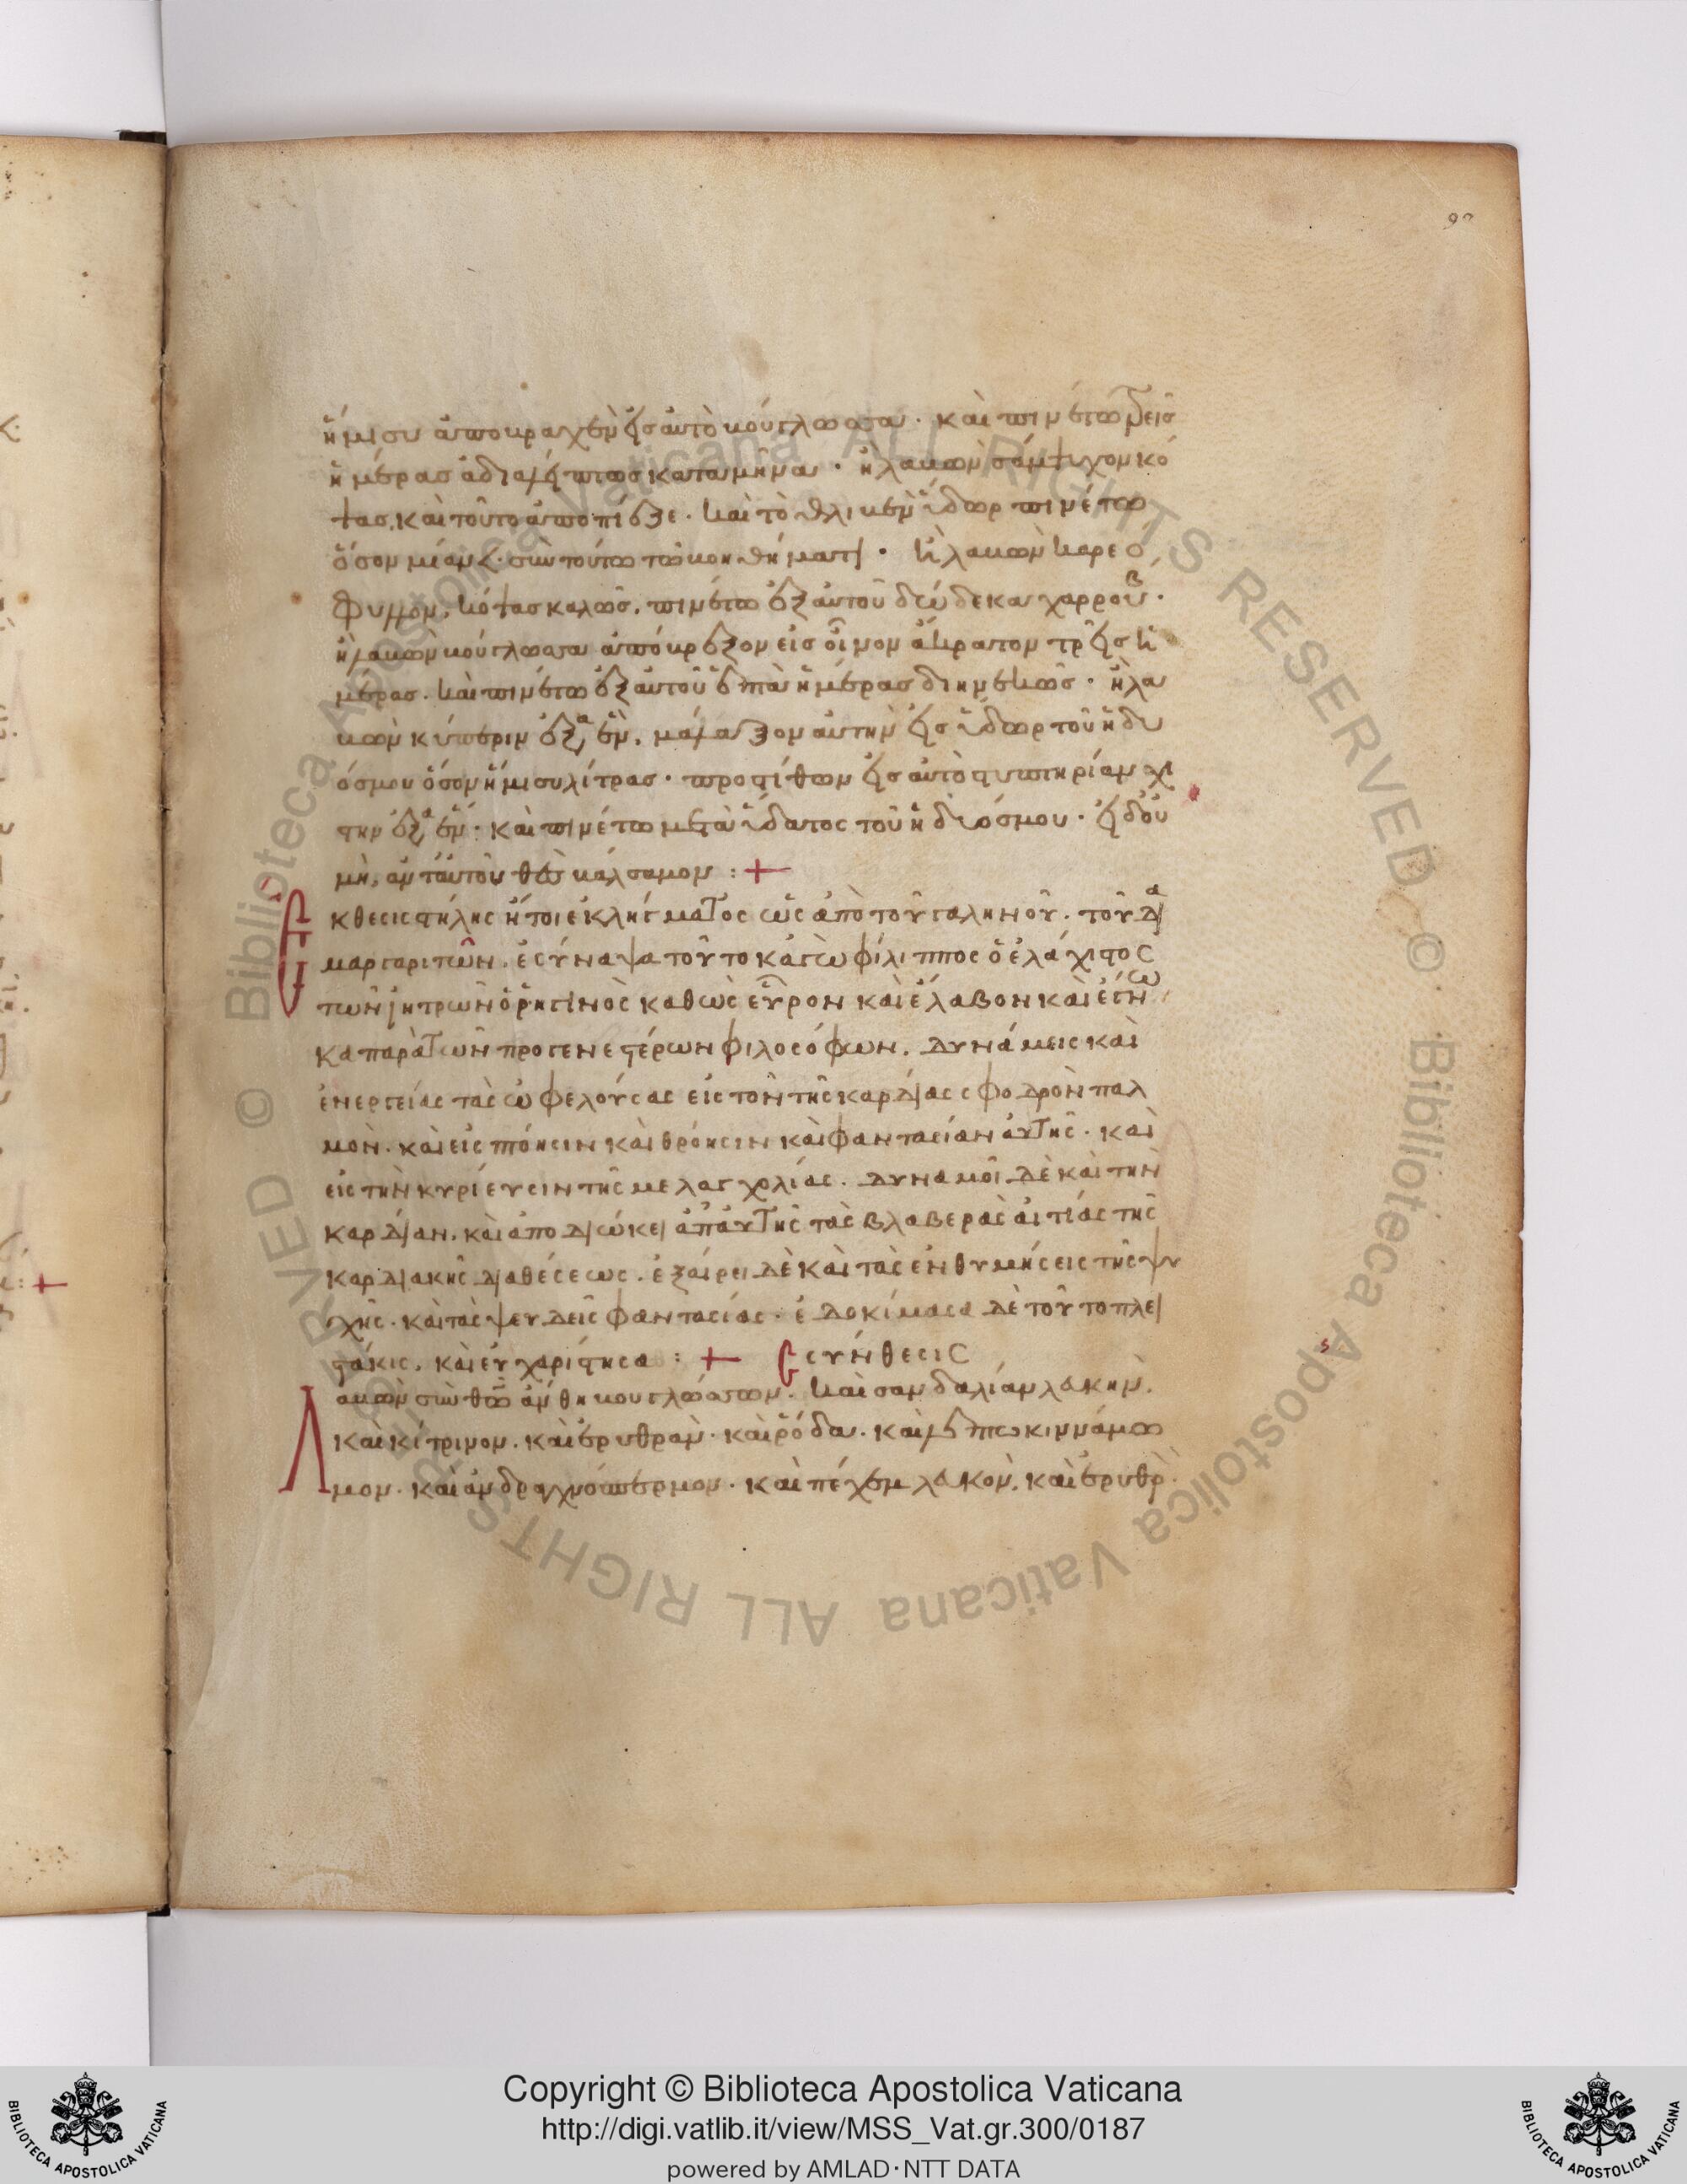 90
ἥμισυ ἀπόβραχεν εἰς αὐτὸ βούγλωσσα· καὶ πινέτω τρεῖς
ἡμέρας ἀδιαλείπτως κατα μῆνα· ἢ λαβὼν σάμψυχον κό
ψας, καὶ τοῦτο ἀποπίεζε. καὶ τὸ ἐκθλιβὲν ὕδωρ πινέτω
ὅσον μίαν σὺν τούτω τῶ βοηθήματι· ἢ λαβὼν καρεό
φυλλον, κόψας καλῶς, πινέτω ἐξ αὐτοῦ δώδεκα χαρρούβ·
ἢ λαβὼν βούγλωσσα ἀπόβρεξον εἰς οἶνον ἄκρατον τρεῖς ἡ
μέρας. καὶ πινέτω ἐξ αὐτοῦ ἑπτὰ ἡμέρας διηνεκῶς· ἢ λα
βὼν κύπεριν ἐξα ἕν, μάλαξον αὐτὴν εἰς ὕδωρ τοῦ ἡδυ
όσμου ὅσον ἥμισυ λίτρας· προστίθων εἰς αὐτὸ στυπτηρίαν χι
στὴν ἐξα ἕν· καὶ πινέτω μετὰ ὕδατος τοῦ ἡδυόσμου· εἰ δ' οὖ
μὴ, ἀντ' αὐτοῦ θὲς βάλσαμον : +
Ἔκθεσις στήλης ἤτοι ἐκλήγματος ὡς ἀπὸ τοῦ γαληνοῦ. τοῦ δια
μαργαριτῶν. ἐσύναψα τοῦτο κἀγὼ φίλιππος ὁ ἐλάχιστος
τῶν ἰητρῶν ὁ ῥηγῖνὸς καθὼς εὗρον καὶ ἔλαβον καὶ ἔγνω
κα παρὰ τῶν προγενεστέρων φιλοσόφων. δυνάμεις καὶ
ἐνεργείας τὰς ὠφελούσας εἰς τὸν τῆς καρδίας σφοδρὸν παλ
μὸν. καὶ εἰς πτόησιν καὶ θρόησιν καὶ φαντασίαν αὐτῆς. καὶ
εἰς τὴν κυρίευσιν τῆς μελαγχολίας. δυναμοῖ δὲ καὶ τὴν
καρδίαν. καὶ ἀποδιώκει ἀπ' αὐτῆς τὰς βλαβερὰς αἰτίας τῆς
καρδιακῆς διαθέσεως. ἐξαίρει δὲ καὶ τὰς ἐνθυμήσεις τῆς ψυ
χῆς. καὶ τὰς ψευδεῖς φαντασίας. ἐδοκίμασα δὲ τοῦτο πλει
στάκις, καὶ εὐχαρίστησα : + ἡ σύνθεσις
Λαβὼν σὺν θεῶ ἄνθη βουγλώσσων. καὶ σανδαλίαν λευκὴν.
καὶ κίτρινον. καὶ ἐρυθρὰν. καὶ ῥόδα. καὶ λεπτοκιννάμω
μον. καὶ ἀνδραχνόσπερμον. καὶ πέχεμ λευκὸν. καὶ ἐρυθρὸ
Copyright © Biblioteca Apostolica Vaticana
http://digi.vatlib.it/view/MSS_Vat.gr.300/0187
powered by AMLAD·NTT DATA